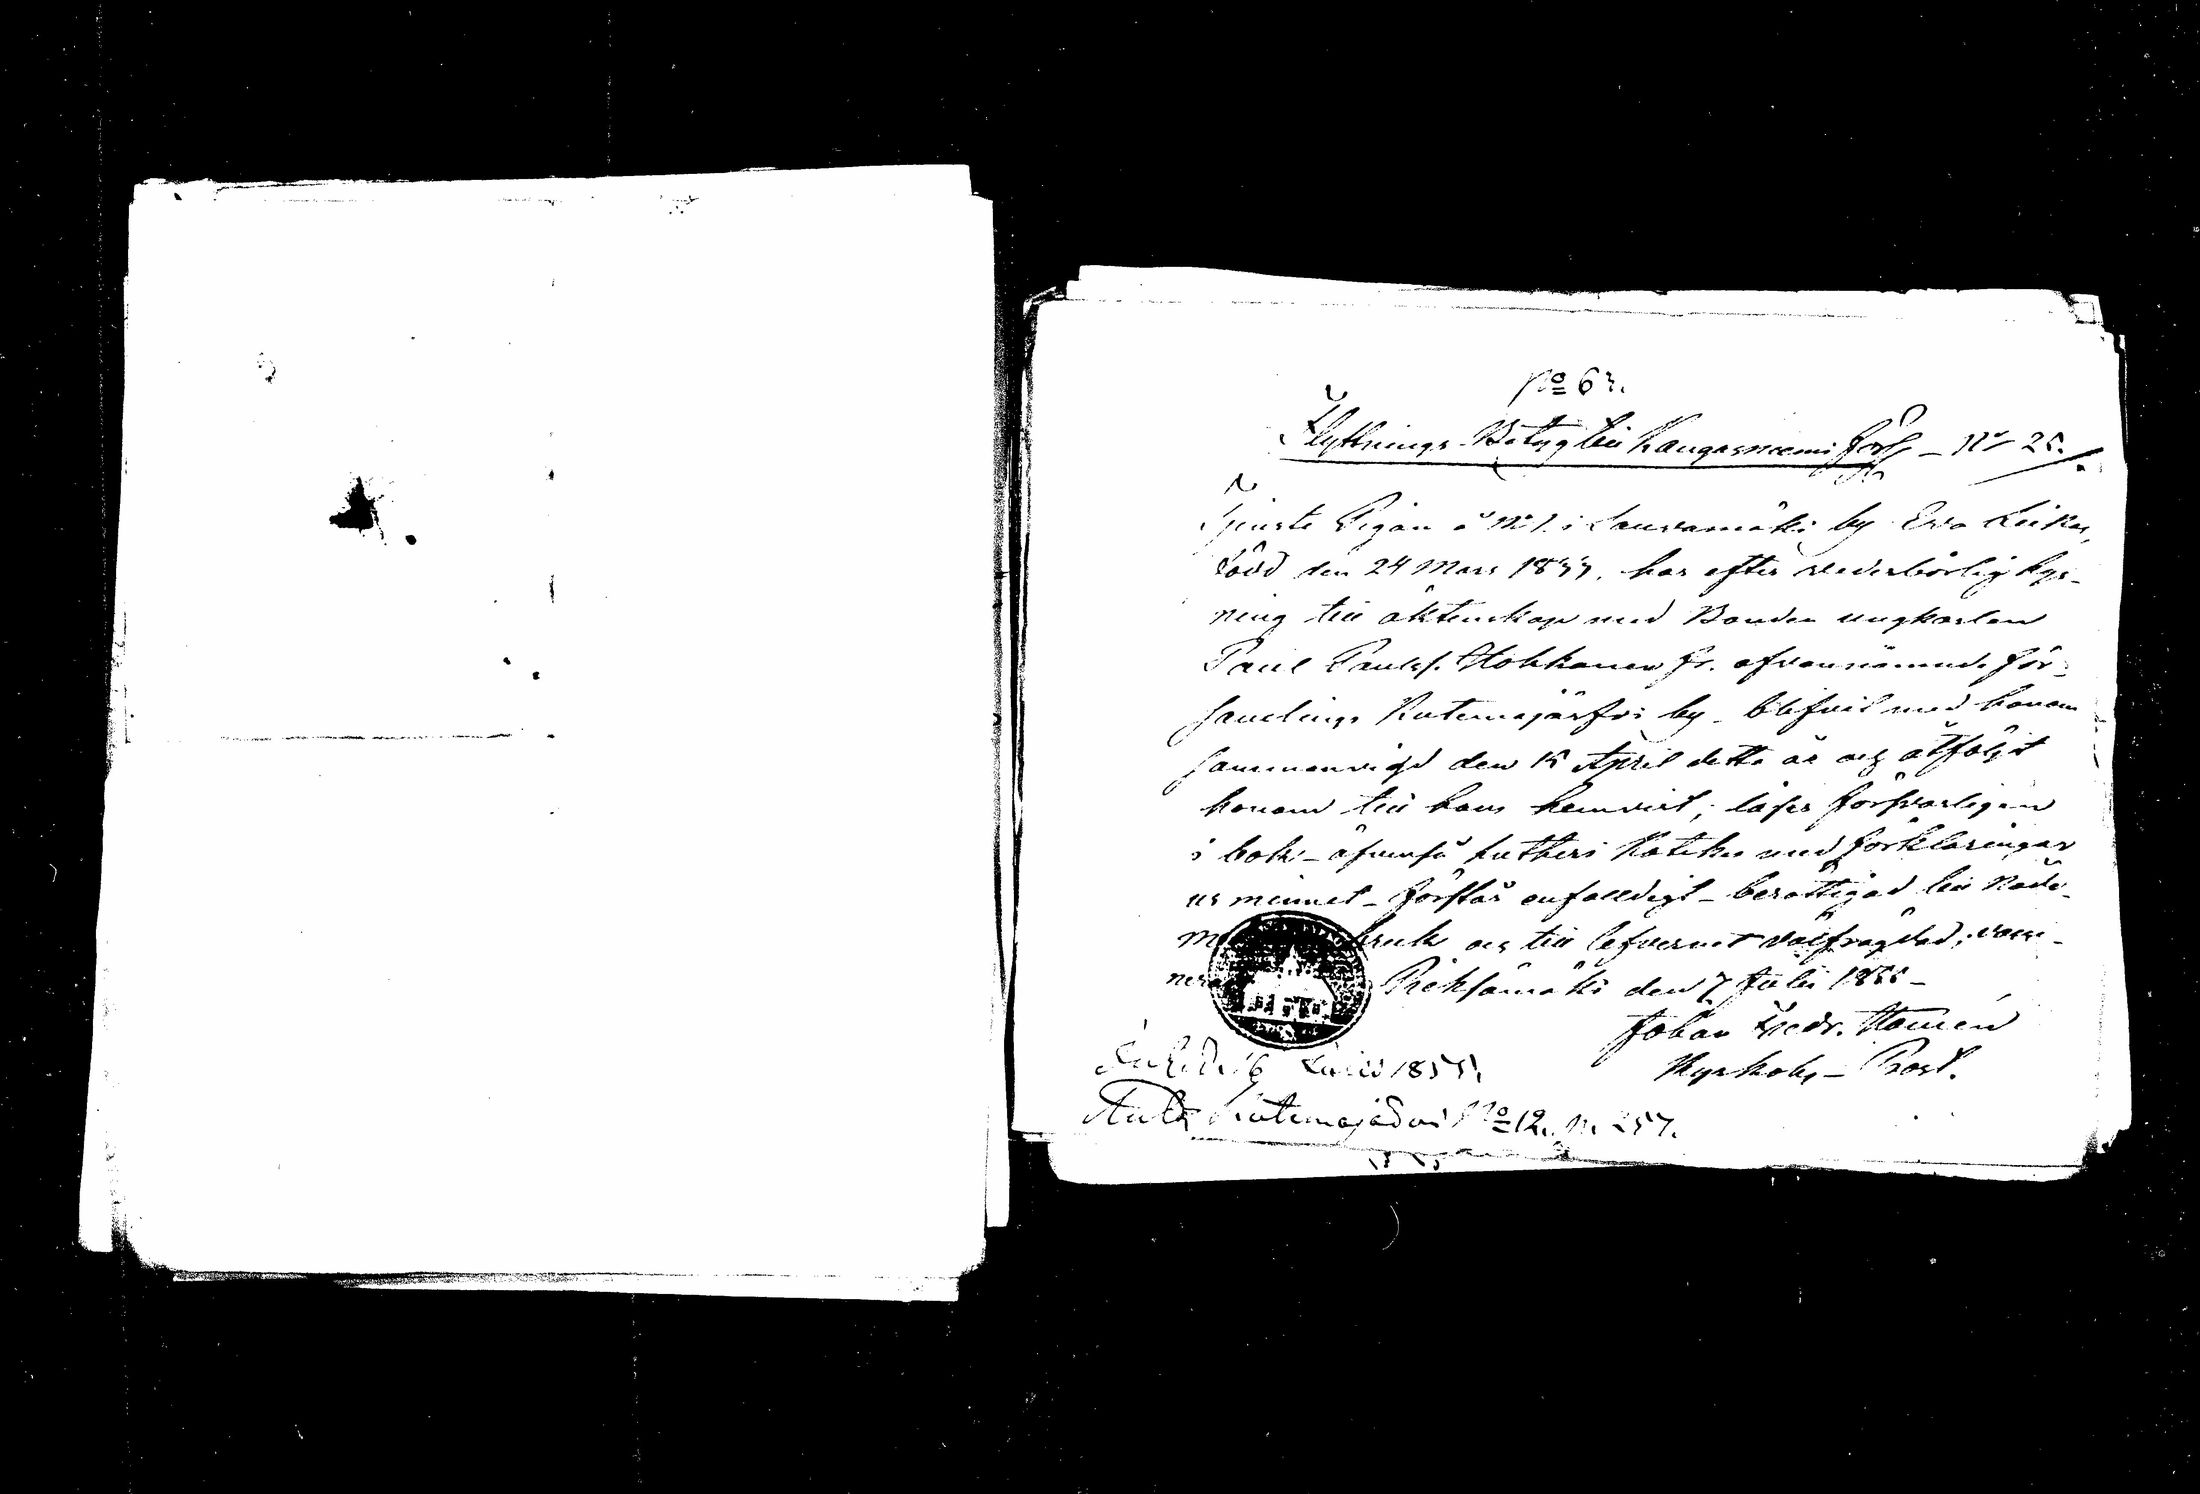 No 63.
Flyttnings Betyg till Kangasniemi Förs - No 25.
Tjenste Pigan å No 1. i Lauvamäki by Eva Leikas,
född den 24 Mars 1833, har efter vederbörlig lys-
ning till äktenskap med Bonden ungkarlen
Paul Paulss. Hokkanen fr. ofvannämnde för-
samlings Kutemajärfvi by blifvit med honom
sammanvigd den 15 April detta år och åtföljt
honom till hans hemvist; läser försvarligen
i bok - äfvenså Lutheri Kateches med förklaringar
ur minnet - förstår enfaldigt - berättigad till Natt-
bruk och till lefvernet välfrägdad; vacci-
Pieksämäki den 7 Juli 1855 -
Johan Fredr.
Kyrkoh, - Prost.
1855.
Kutemajärvi No 12. p. 257.